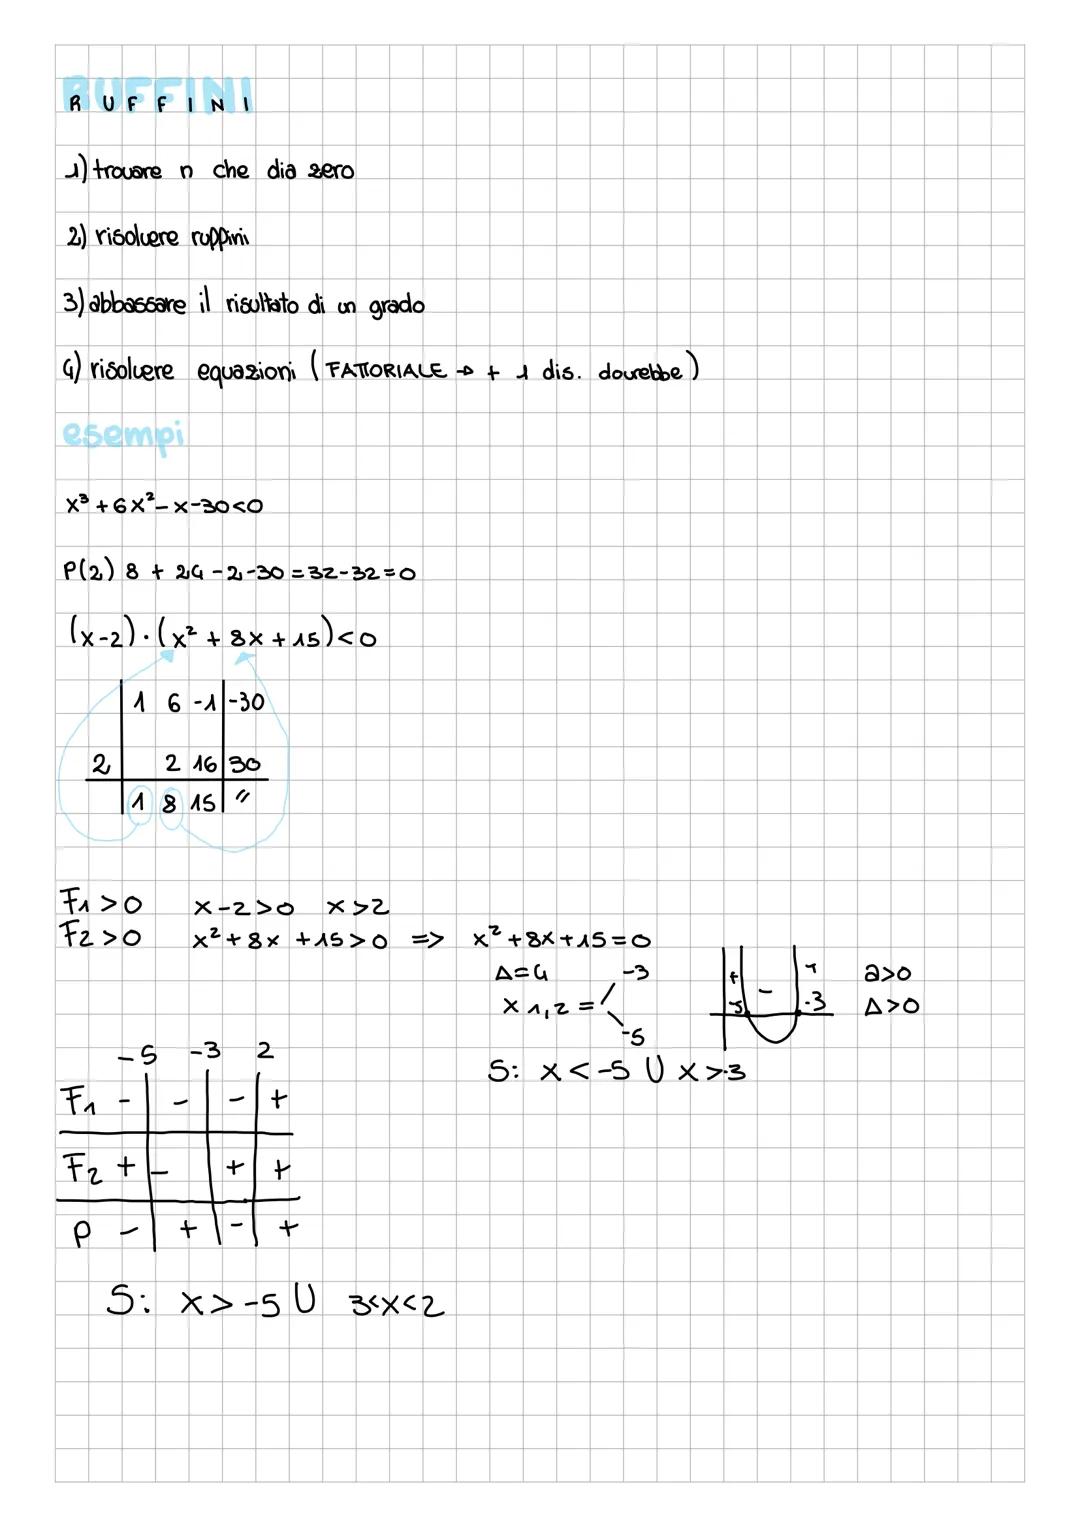 RUFFINI
1) trovare n che dia zero
2) risolvere ruffini
3) abbassare il risultato di un grado
4) risolvere equazioni (FATTORIALE → + 1 dis. dovrebbe)
esempi
x³ + 6x² - x - 30 < 0
P(2) 8 + 24 - 2 - 30 = 32 - 32 = 0
(x-2) · (x² + 8x + 15) < 0
1 6 -1 | -30
2 | 2 16 | 30
1 8 15 | "
F1 > 0 x - 2 > 0 x > 2
F2 > 0 x² + 8x + 15 > 0 => x² + 8x + 15 = 0
Δ = 4 -3
x 1,2 =
-5
+ - + a > 0
-5 -3 Δ > 0
S: x < -5 U x > -3
-5 -3 2
F1 - | - | - | +
F2 + | - | + | +
P - | + | - | +
S: x > -5 U 3 < x < 2